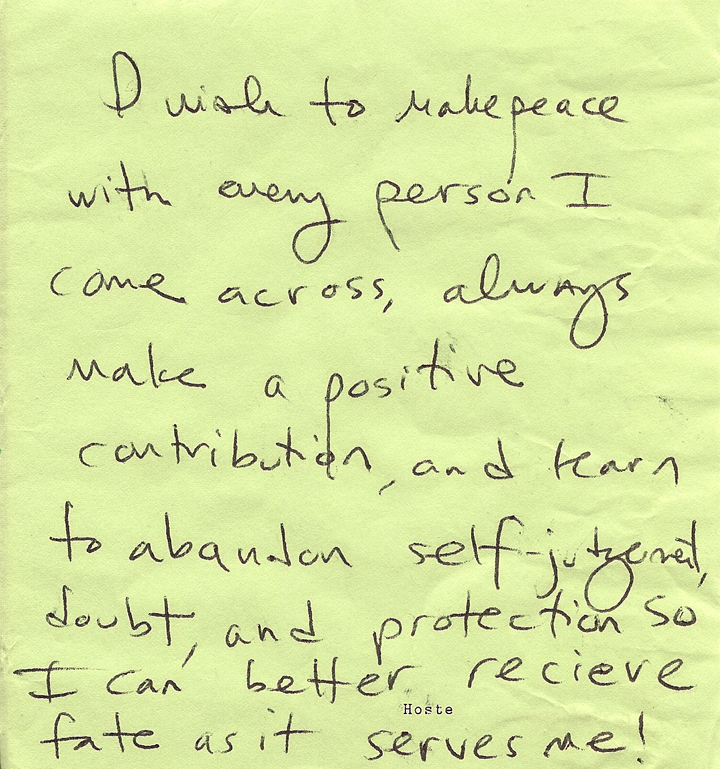 I wish to make peace
with every person I
come across, always
make a positive
contribution, and learn
to abandon self-judgement,
doubt, and protection so
I can better recieve
Hoste
fate as it serves me!